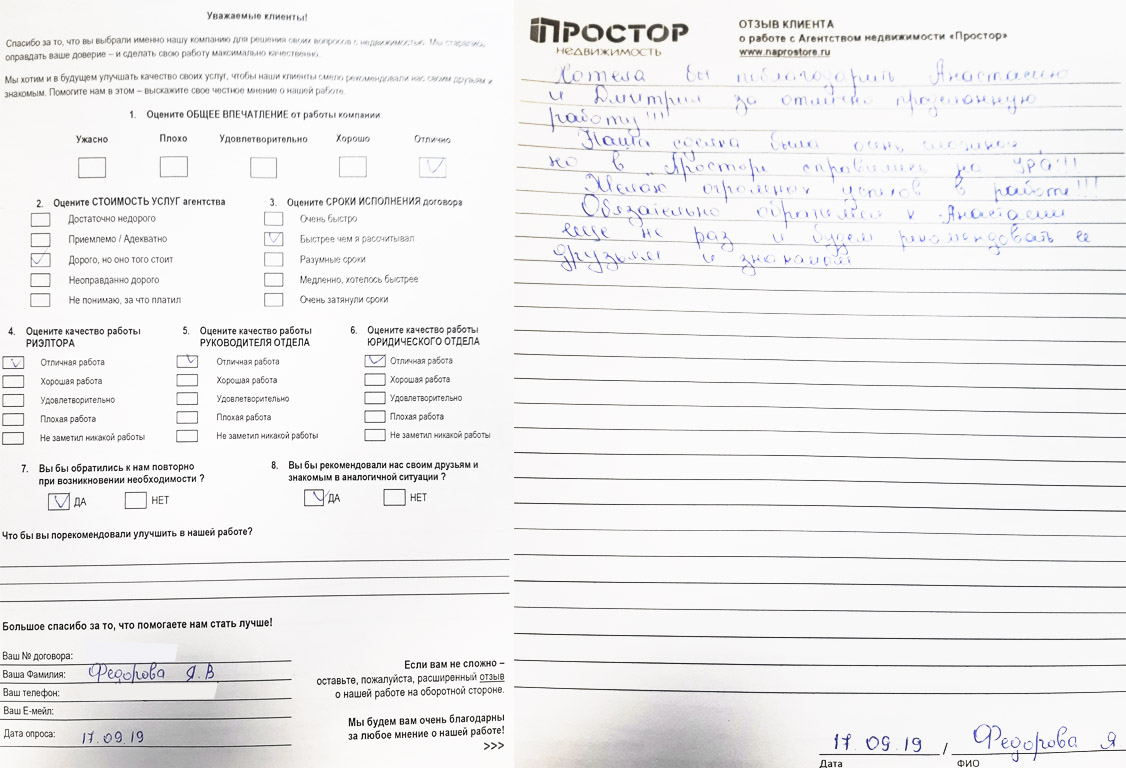 Уважаемые клиенты!
Спасибо за то, что вы выбрали именно нашу компанию для решения своих вопросов с недвижимостью. Мы старались
оправдать ваше доверие – и сделать свою работу максимально качественно.
Мы хотим и в будущем улучшать качество своих услуг, чтобы наши клиенты смело рекомендовали нас своим друзьям и
знакомым. Помогите нам в этом – выскажите свое честное мнение о нашей работе.
1. Оцените ОБЩЕЕ ВПЕЧАТЛЕНИЕ от работы компании:
Ужасно Плохо Удовлетворительно Хорошо Отлично
2. Оцените СТОИМОСТЬ УСЛУГ агентства
Достаточно недорого
Приемлемо / Адекватно
Дорого, но оно того стоит
Неоправданно дорого
Не понимаю, за что платил
3. Оцените СРОКИ ИСПОЛНЕНИЯ договора
Очень быстро
Быстрее чем я рассчитывал
Разумные сроки
Медленно, хотелось быстрее
Очень затянули сроки
4. Оцените качество работы
РИЭЛТОРА
Отличная работа
Хорошая работа
Удовлетворительно
Плохая работа
Не заметил никакой работы
5. Оцените качество работы
РУКОВОДИТЕЛЯ ОТДЕЛА
Отличная работа
Хорошая работа
Удовлетворительно
Плохая работа
Не заметил никакой работы
6. Оцените качество работы
ЮРИДИЧЕСКОГО ОТДЕЛА
Отличная работа
Хорошая работа
Удовлетворительно
Плохая работа
Не заметил никакой работы
7. Вы бы обратились к нам повторно
при возникновении необходимости ?
ДА НЕТ
8. Вы бы рекомендовали нас своим друзьям и
знакомым в аналогичной ситуации ?
ДА НЕТ
Что бы вы порекомендовали улучшить в нашей работе?
Большое спасибо за то, что помогаете нам стать лучше!
Ваш № договора:
Ваша Фамилия: Федорова Я.В
Ваш телефон:
Ваш Е-мейл:
Дата опроса: 17.09.19
Если вам не сложно –
оставьте, пожалуйста, расширенный отзыв
о нашей работе на оборотной стороне.
Мы будем вам очень благодарны
за любое мнение о нашей работе!
>>>
ПРОСТОР
НЕДВИЖИМОСТЬ
ОТЗЫВ КЛИЕНТА
о работе с Агентством недвижимости «Простор»
www.naprostore.ru
Хотела бы поблагодарить Анастасию
и Дмитрия за отлично проделанную
работу!!!
Наша сделка была очень сложной,
но в "Просторе справились на УРА!!!
Желаю огромных успехов в работе!!!
Обязательно обратимся к Анастасии
еще не раз и будем рекомендовать ее
друзьям и знакомым
17.09.19 / Федорова Я
Дата ФИО